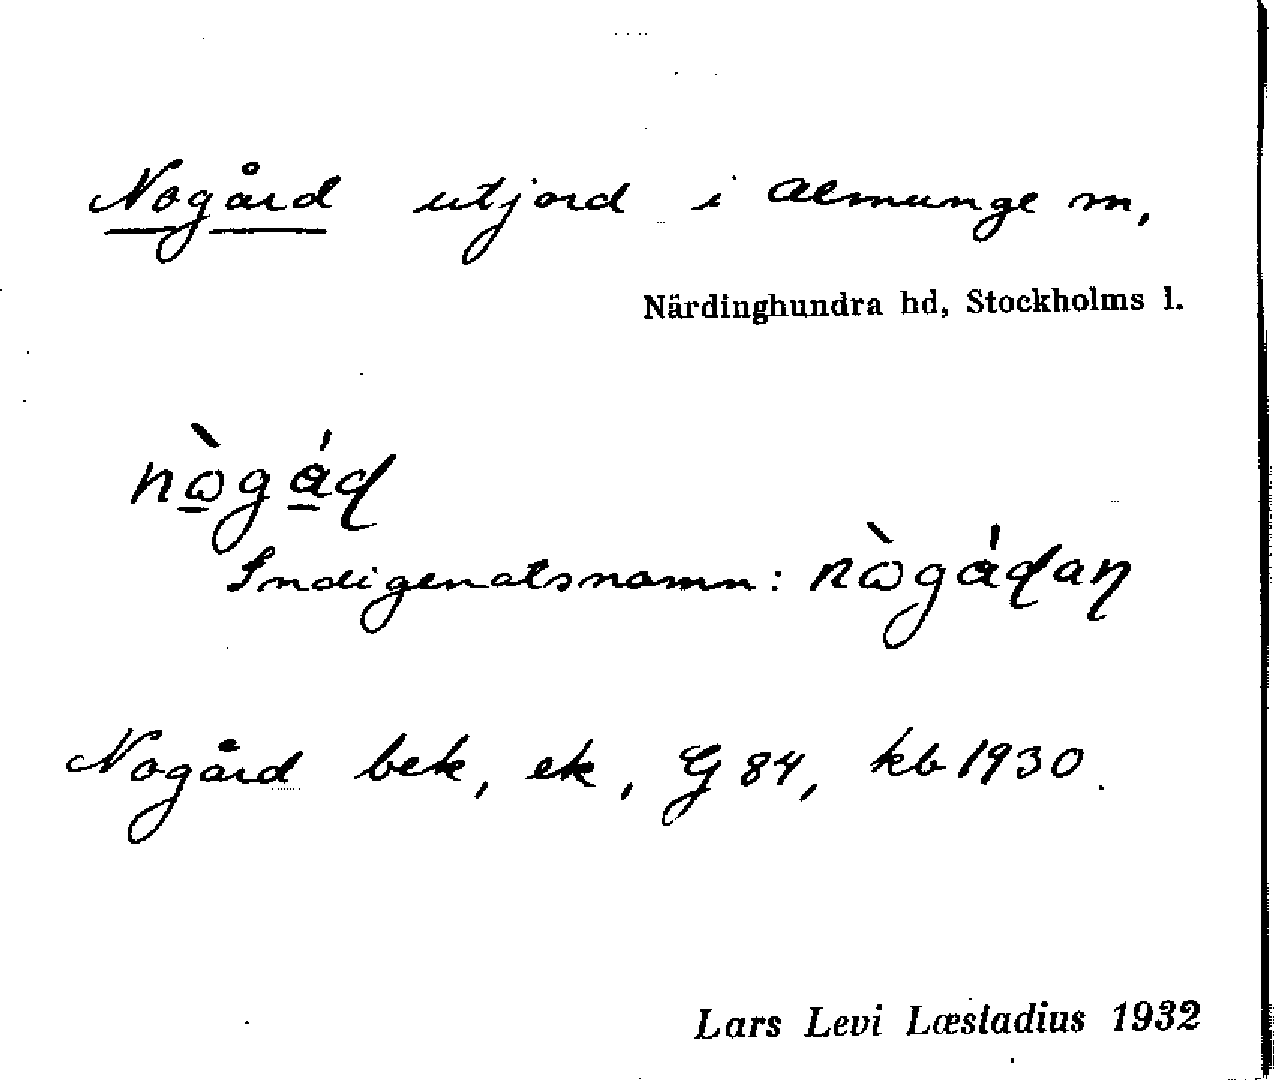 Nogård utjord i Almunge sn,
Närdinghundra hd, Stockholms l.
nògád
Indigenatsnamn: nògádan
Nogård bek, ek, G 84, kb 1930.
Lars Levi Læstadius 1932